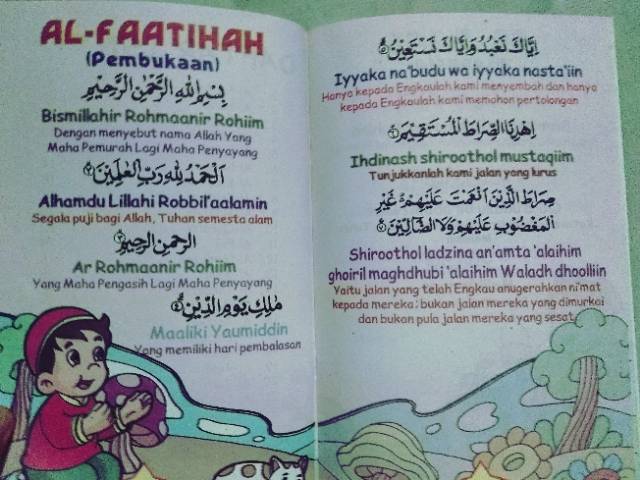 AL-FAATIHAH
(Pembukaan)
بِسْمِ اللهِ الرَّحْمٰنِ الرَّحِيْمِ
Bismillahir Rohmaanir Rohiim
Dengan menyebut nama Allah Yang
Maha Pemurah Lagi Maha Penyayang
اَلْحَمْدُ لِلّٰهِ رَبِّ الْعٰلَمِيْنَ ٢
Alhamdu Lillahi Robbil'aalamin
Segala puji bagi Allah, Tuhan semesta alam
الرَّحْمٰنِ الرَّحِيْمِ ٣
Ar Rohmaanir Rohiim
Yang Maha Pengasih Lagi Maha Penyayang
مٰلِكِ يَوْمِ الدِّيْنِ ٤
Maaliki Yaumiddin
Yang memiliki hari pembalasan
اِيَّاكَ نَعْبُدُ وَاِيَّاكَ نَسْتَعِيْنُ ٥
Iyyaka na'budu wa iyyaka nasta'iin
Hanya kepada Engkaulah kami menyembah dan hanya
kepada Engkaulah kami memohon pertolongan
اِهْدِنَا الصِّرَاطَ الْمُسْتَقِيْمَ ٦
Ihdinash shiroothol mustaqiim
Tunjukkanlah kami jalan yang lurus
صِرَاطَ الَّذِيْنَ اَنْعَمْتَ عَلَيْهِمْ غَيْرِ
الْمَغْضُوْبِ عَلَيْهِمْ وَلَا الضَّآلِّيْنَ ٧
Shiroothol ladzina an'amta 'alaihim
ghoiril maghdhubi 'alaihim Waladh dhoolliin
Yaitu jalan yang telah Engkau anugerahkan ni'mat
kepada mereka; bukan jalan mereka yang dimurkai
dan bukan pula jalan mereka yang sesat